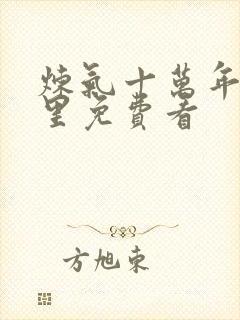 煉氣十萬年
里免費看
方旭東